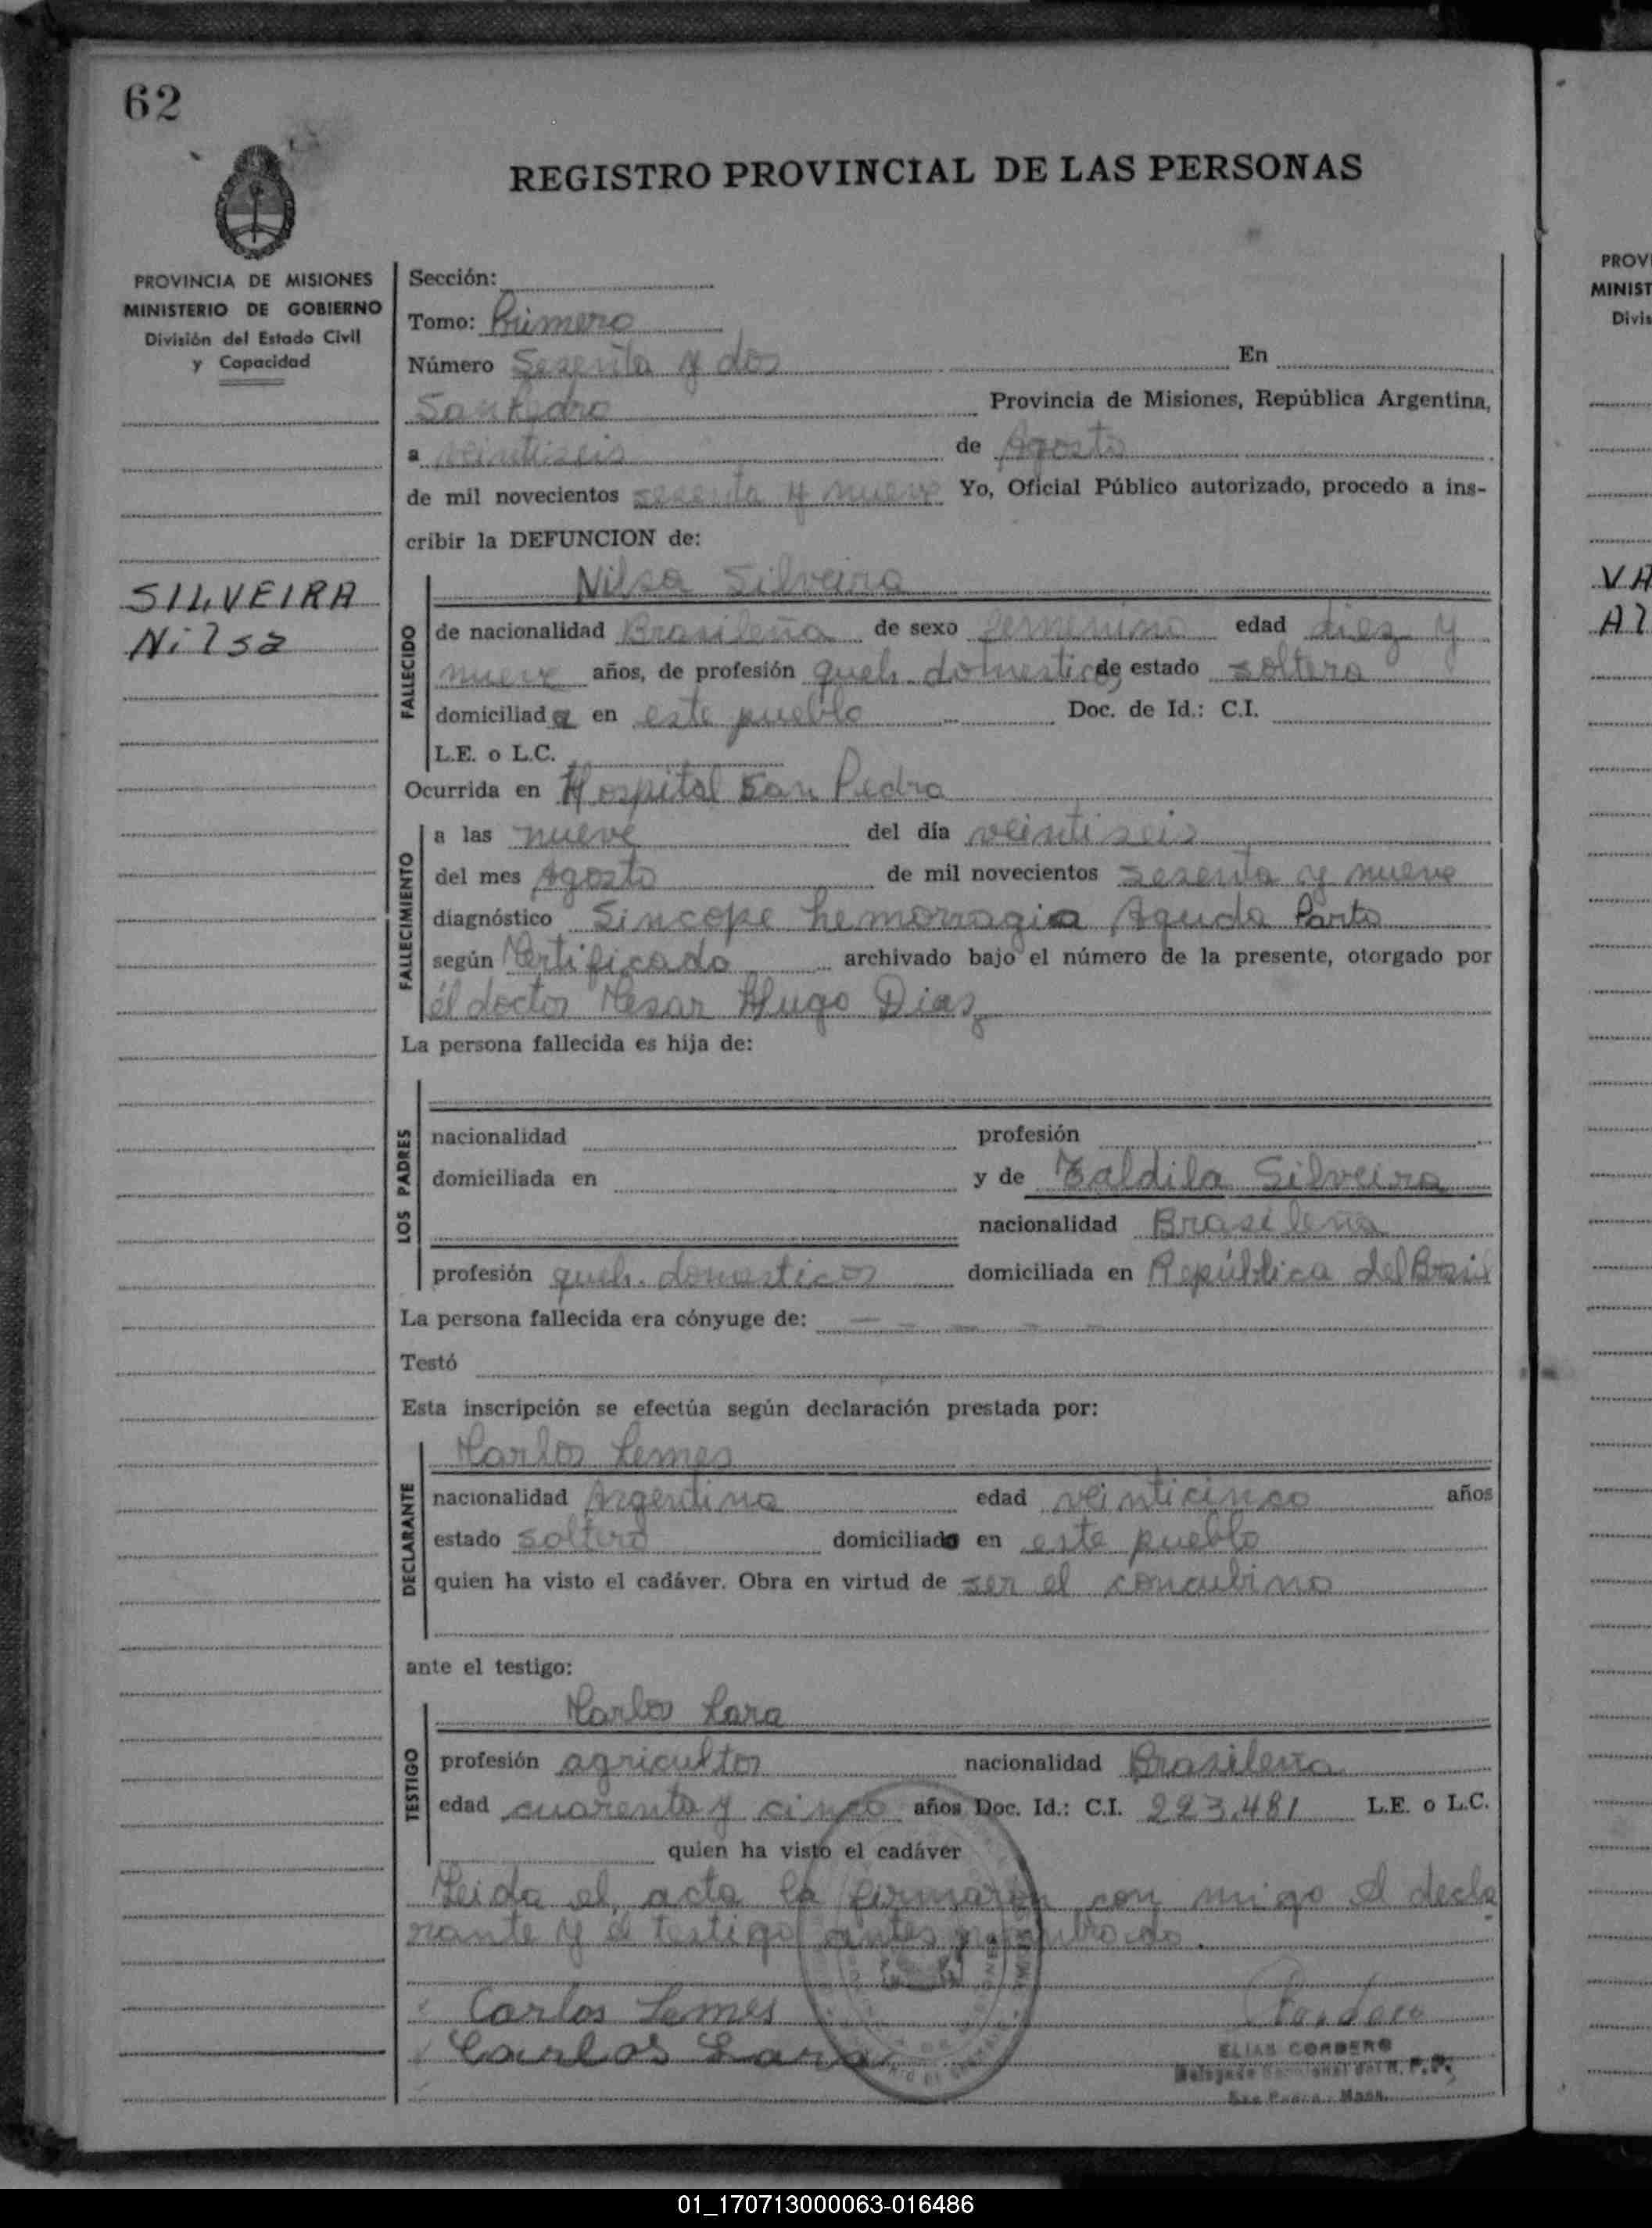 62
REGISTRO PROVINCIAL DE LAS PERSONAS
PROVINCIA DE MISIONES
MINISTERIO DE GOBIERNO
División del Estado Civil
y Capacidad
SILVEIRA
Nilsa
Sección:
Tomo: Primero
Número Sesenta y dos En
San Pedro Provincia de Misiones, República Argentina,
a veintiseis de Agosto
de mil novecientos sesenta y nueve Yo, Oficial Público autorizado, procedo a ins-
cribir la DEFUNCION de:
FALLECIDO
Nilsa Silveira
de nacionalidad Brasileña de sexo femenino edad diez y
nueve años, de profesión queh. domesticos de estado soltera
domiciliada en este pueblo Doc. de Id.: C.I.
L.E. o L.C.
Ocurrida en Hospital San Pedro
FALLECIMIENTO
a las nueve del día veintiseis
del mes Agosto de mil novecientos sesenta y nueve
diagnóstico Sincope hemorragia Aguda Parto
según Certificado archivado bajo el número de la presente, otorgado por
él doctor Cesar Hugo Diaz
La persona fallecida es hija de:
LOS PADRES
nacionalidad profesión
domiciliada en y de Zaldila Silveira
nacionalidad Brasileña
profesión queh. domesticos domiciliada en República del Brasil
La persona fallecida era cónyuge de: - - - - -
Testó
Esta inscripción se efectúa según declaración prestada por:
DECLARANTE
Carlos Lemes
nacionalidad Argentina edad veinticinco años
estado soltero domiciliado en este pueblo
quien ha visto el cadáver. Obra en virtud de ser el concubino
ante el testigo:
TESTIGO
Carlos Lara
profesión agricultor nacionalidad Brasileña
edad cuarenta y cinco años Doc. Id.: C.I. 223.481 L.E. o L.C.
quien ha visto el cadáver
Leida el acta la firmaron con migo el decla
rante y el testigo antes nombrado.
Carlos Lemes
Carlos Lara
ELIAS CORDERO
Delegado Seccional del R. P. P.
San Pedro - Mnes.
PROVI
MINIST
Divis
VA
Al
01_170713000063-016486